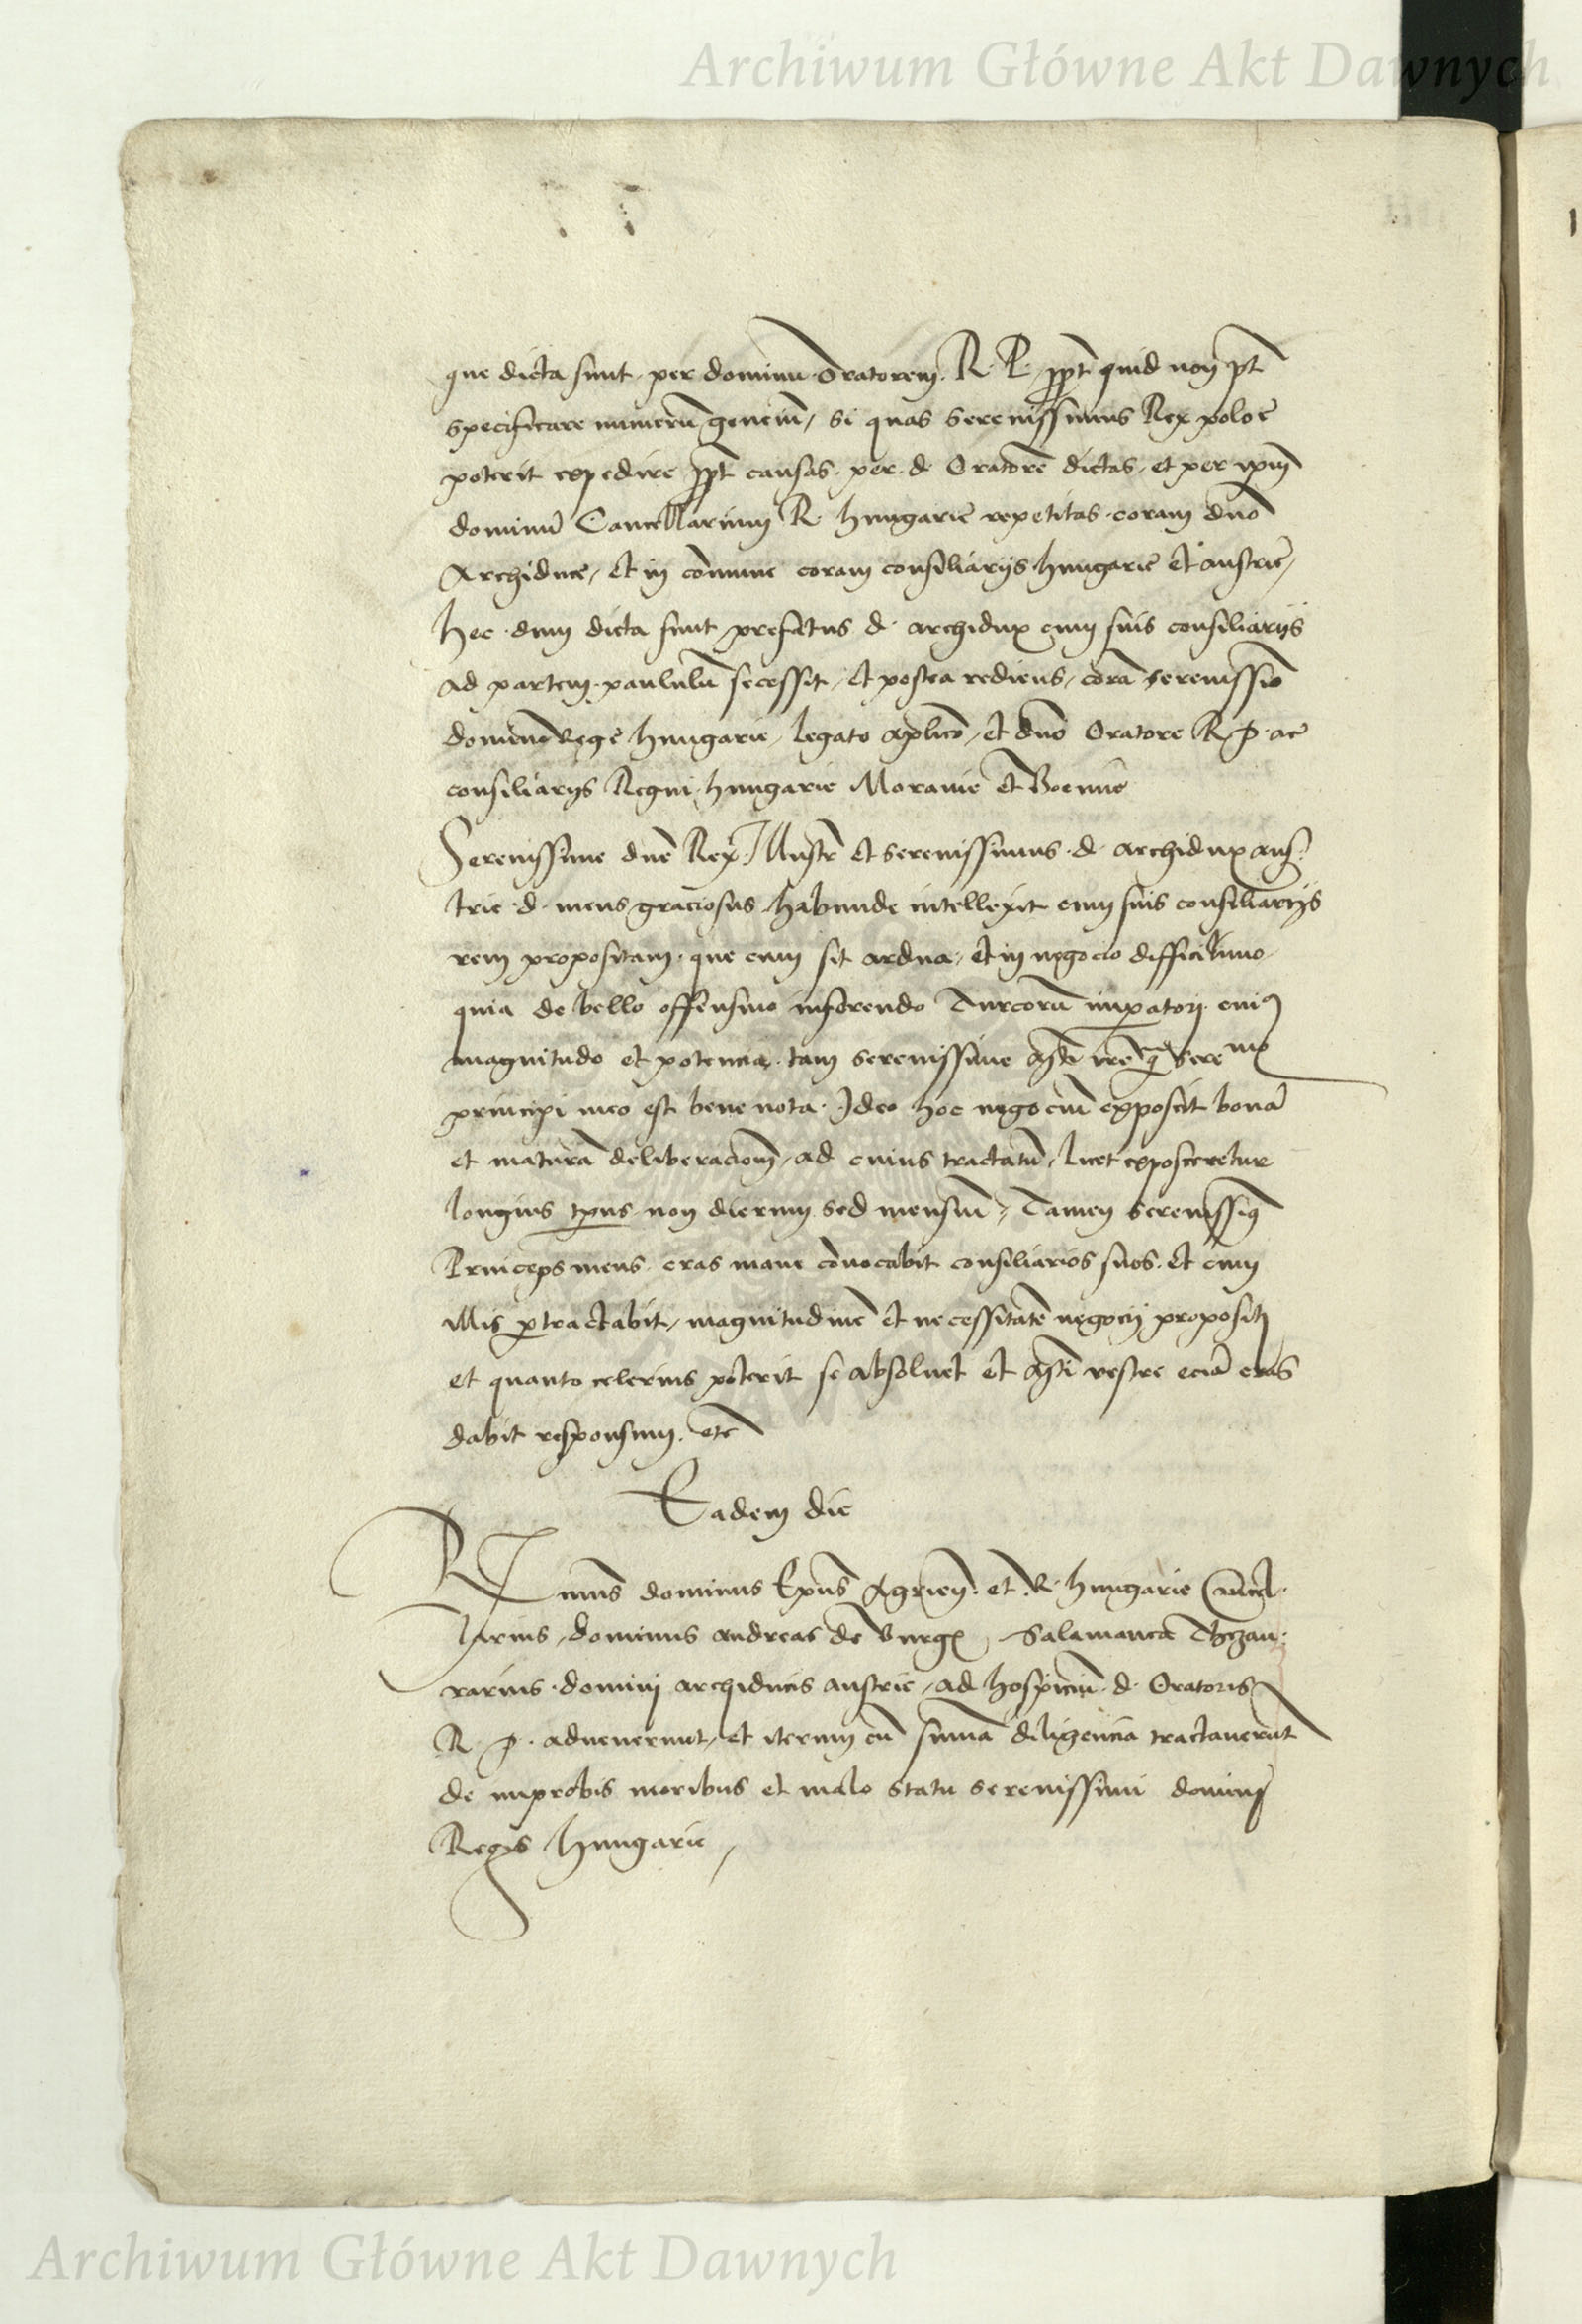 Archiwum Główne Akt Dawnych
que dicta sunt per dominū Oratorem R. P. ꝓpt quid non pt
specificare numerū genciū, si quas serenissimus Rex poloē
poterit expedire ꝓpt causas per d. Oratorē dictas et per ipm̄
dominū Cancellarium R. hungarie repetitas coram dn̄o
Archiduce, et in com̄une coram consiliarijs hungarie et austrie,
hec dum dicta sunt prefatus d. archidux cum suis consiliarijs
ad partem paululū secessit, et postea rediens, corā serenissīo
domino Rege hungarie, legato aplico, et dn̄o Oratore R. P. ac
consiliarijs Regni hungarie Moravie et Boemie
Serenissime dn̄e Rex, Illustr̄ et serenissimus d. archidux aus
trie d. meus graciosus habunde intellexit cum suis consiliarijs
rem propositam que cum sit ardua, et in negocio difficilimo
quia de bello offensivo inferendo Turcorū impatori cui9
magnitudo et potencia tam serenissime
principi meo est bene nota. Ideo hoc negociū exposcit bonā
et maturā deliberacionē, ad cuius tractatū, licet exposceretur
longius tp̄us non dierum sed mensiū, Tamen serenissim9
Princeps meus cras mane cōvocabit consiliarios suos et cum
illis ꝑtractabit, magnitudinē et necessitatē negocij propositi
et quanto celerius poterit se absolvet et Mti vestre eciā cras
dabit responsum. etc
Eadem die
Rmus dominus Ep̄us Agrien̄. et R. hungarie Cancel
larius, dominus andreas de Burgo, Salamanca Thezau
rarius domini archiducis austrie, ad hospiciū d. Oratoris
R. P. advenerunt, et iterum cū sum̄a diligencia tractaverūt
de improbis moribus et malo statu serenissimi domini
Regis hungarie,
Archiwum Główne Akt Dawnych